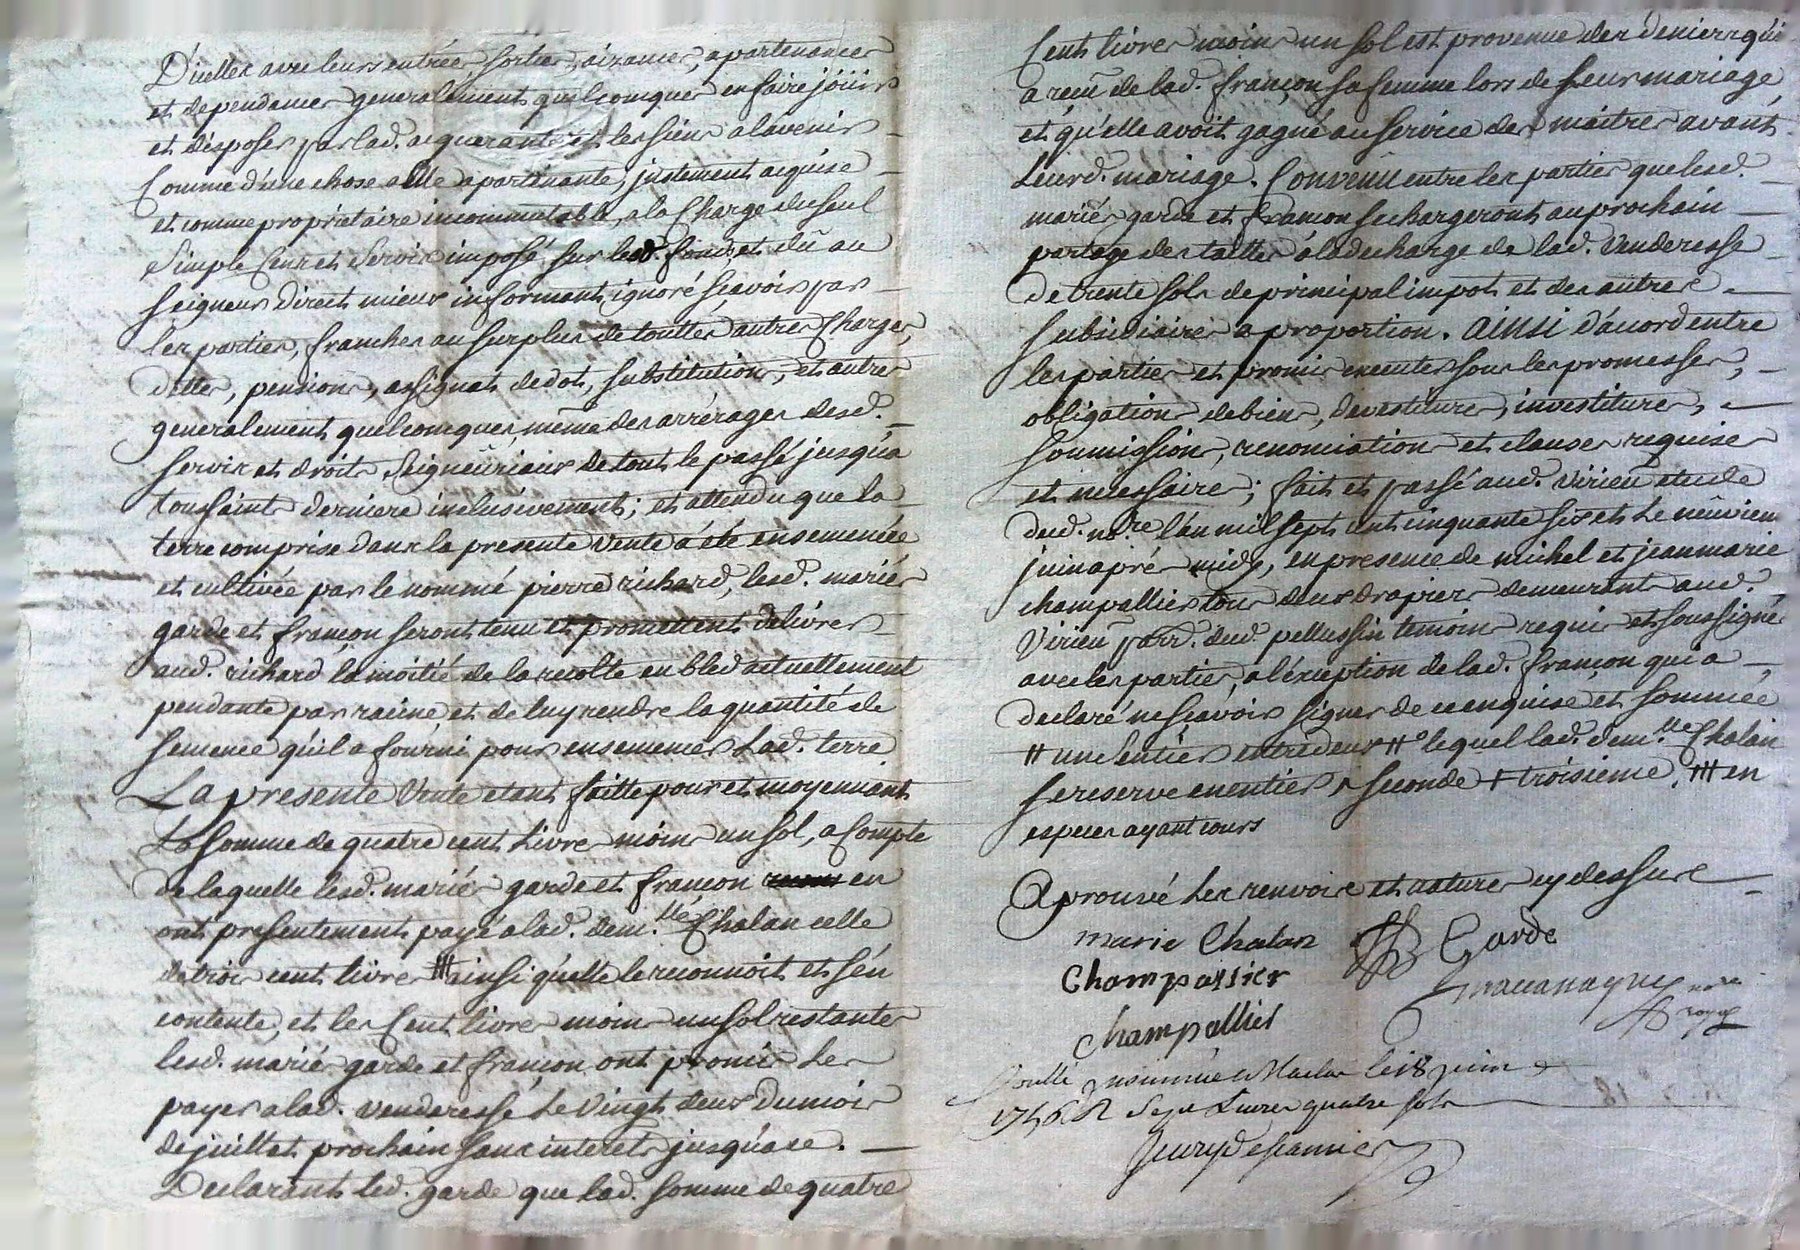 D'icelles avec leurs entrées, sorties, aizances, apartenances
et dependances generalement quelconques en faire jóüir
et disposer par lad. aquerante et les siens a l'avenir
Comme d'une chose a Elle apartenante, justement aquise
et comme propriétaire incommutable, a la Charge du seul
Simple Cens et Servis imposé, sur lesd. fonds et dû au
seigneur direct mieux informant, ignoré sçavoir par
les parties, franches au surplus de touttes autres Charges,
dettes, pensions, assignats de dot, substitutions, et autres
generalement quelconques, même des arrérages desd.
servis et droits Seigneuriaux de tout le passé jusqu'a
toussaints derniere inclusivement; et attendu que la
terre comprise dans la presente Vente a été ensemencée
et cultivée par le nommé pierre richard, lesd. mariés
garde et françon seront tenu et promettent délivrer
aud. richard la moitié de la recolte en bled actuellement
pendante par racine et de luy rendre la quantité de
semence qu'il a fourni pour ensemencer Lad. terre
La presente Vente etant faitte pour et moyennant
La somme de quatre cent Livres moins un sol, a Compte
de laquelle lesd. mariés garde et françon en
ont presentement payé a lad. dem.lle Chalan celle
de trois cent livres ⧻ ainsi qu'elle le reconnoit et s'en
contente, et les Cent livres moins un sol restantes
lesd. mariés garde et françon ont promis Les
payer a lad. venderesse Le Vingt deux du mois
de juillet prochain sans interets jusqu'a ce.
Declarant led. garde que lad. somme de quatre
Cent livres moins un sol est provenue des deniers qu'il
a reçu de lad. françon sa femme lors de Leur mariage,
et qu'elle avoit gagné au service des maitres avant
Leurd. mariage. Convenu entre les parties que lesd.
mariés garde et françon se chargeront au prochain
partage des tailles a la decharge de lad. Venderesse
de trente sols de principal impot et des autres
subsidiaires a proportion. AINSI d'acord entre
les parties et promis executer sous les promesses,
obligations de biens, devestitures, investitures,
soumissions, renonciations et clauses requises
et necessaires; fait et passé aud. Virieu etude
dud. no.re l'an mil sept cent cinquante six et Le neuvieme
juin aprés midy, en presence de michel et jean marie
champallier tous deux drapiers demeurants aud.
Virieu parr. dud. pellussin temoins requis et soussignés
avec les parties, a l'exception de lad. françon qui a
declaré ne sçavoir signer de ce enquise et sommée
⧺ un sentier entredeux ⧺° lequel lad. dem.lle Chalan
se reserve en entier + seconde + troisieme, ⧻ en
especes ayant cours
Aprouvé Les renvois et ratures cy dessus
Marie Chalan Garde
Champallier
Champallier
no.re
royal
Controllé insinué a Maclas le 18 juin
1756 R Sept Livres quatre sols